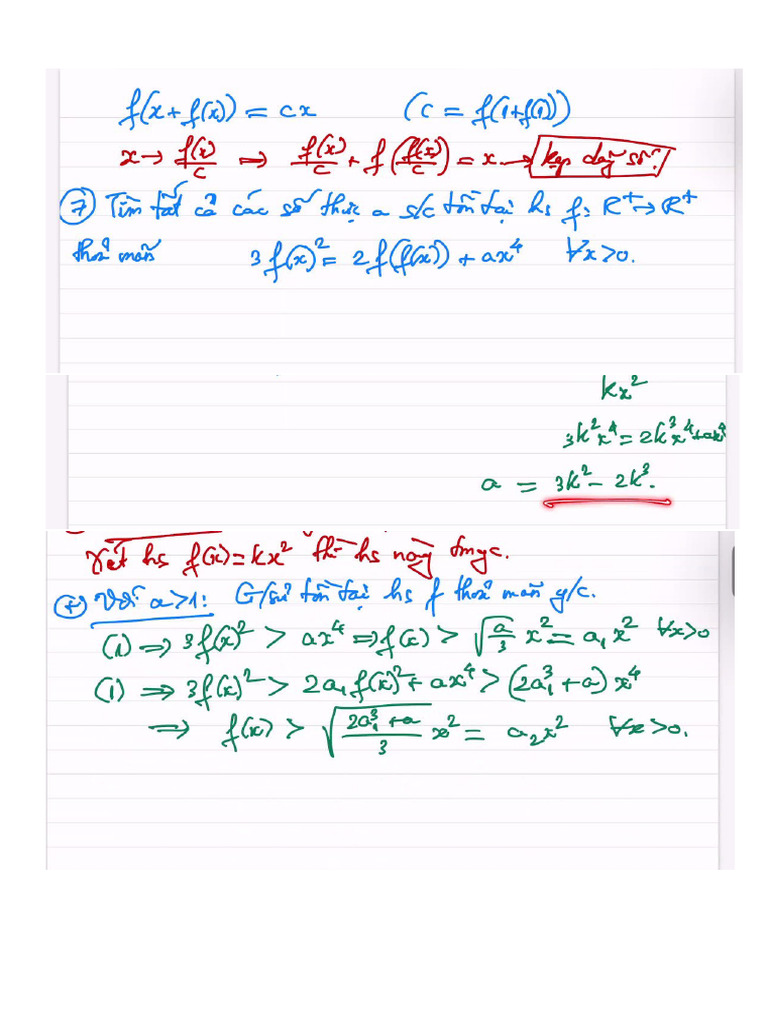 f(x+f(x)) = cx (c = f(1+f(1)))
x → f(x)/c ⇒ f(x)/c + f(f(x)/c) = x → kẹp dãy số!
⑦ Tìm tất cả các số thực a s/c tồn tại hs f: R⁺→R⁺
thoả mãn 3f(x)² = 2f(f(x)) + ax⁴ ∀x>0.
kx²
3k²x⁴ = 2k³x⁴+ax⁴
a = 3k² − 2k³.
Xét hs f(x)=kx² thì hs này tmyc.
(+) Với a>1: G/sử tồn tại hs f thoả mãn y/c.
(1) ⇒ 3f(x)² > ax⁴ ⇒ f(x) > √(a/3) x² = a₁x² ∀x>0
(1) ⇒ 3f(x)² > 2a₁f(x)² + ax⁴ > (2a₁³ + a) x⁴
⇒ f(x) > √((2a₁³ + a)/3) x² = a₂x² ∀x>0.